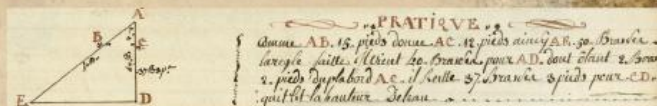 A
B
C
E
D
PRATIQUE
Comme AB. 15. pieds donne AC. 12. pieds ainsy AE. 50. Brasses
la regle faitte il vient 40. Brasses pour AD. dont ôtant 2. Brasses
2. pieds du plabord AC. il reste 37. Brasses 3 pieds pour CD.
qui est la hauteur